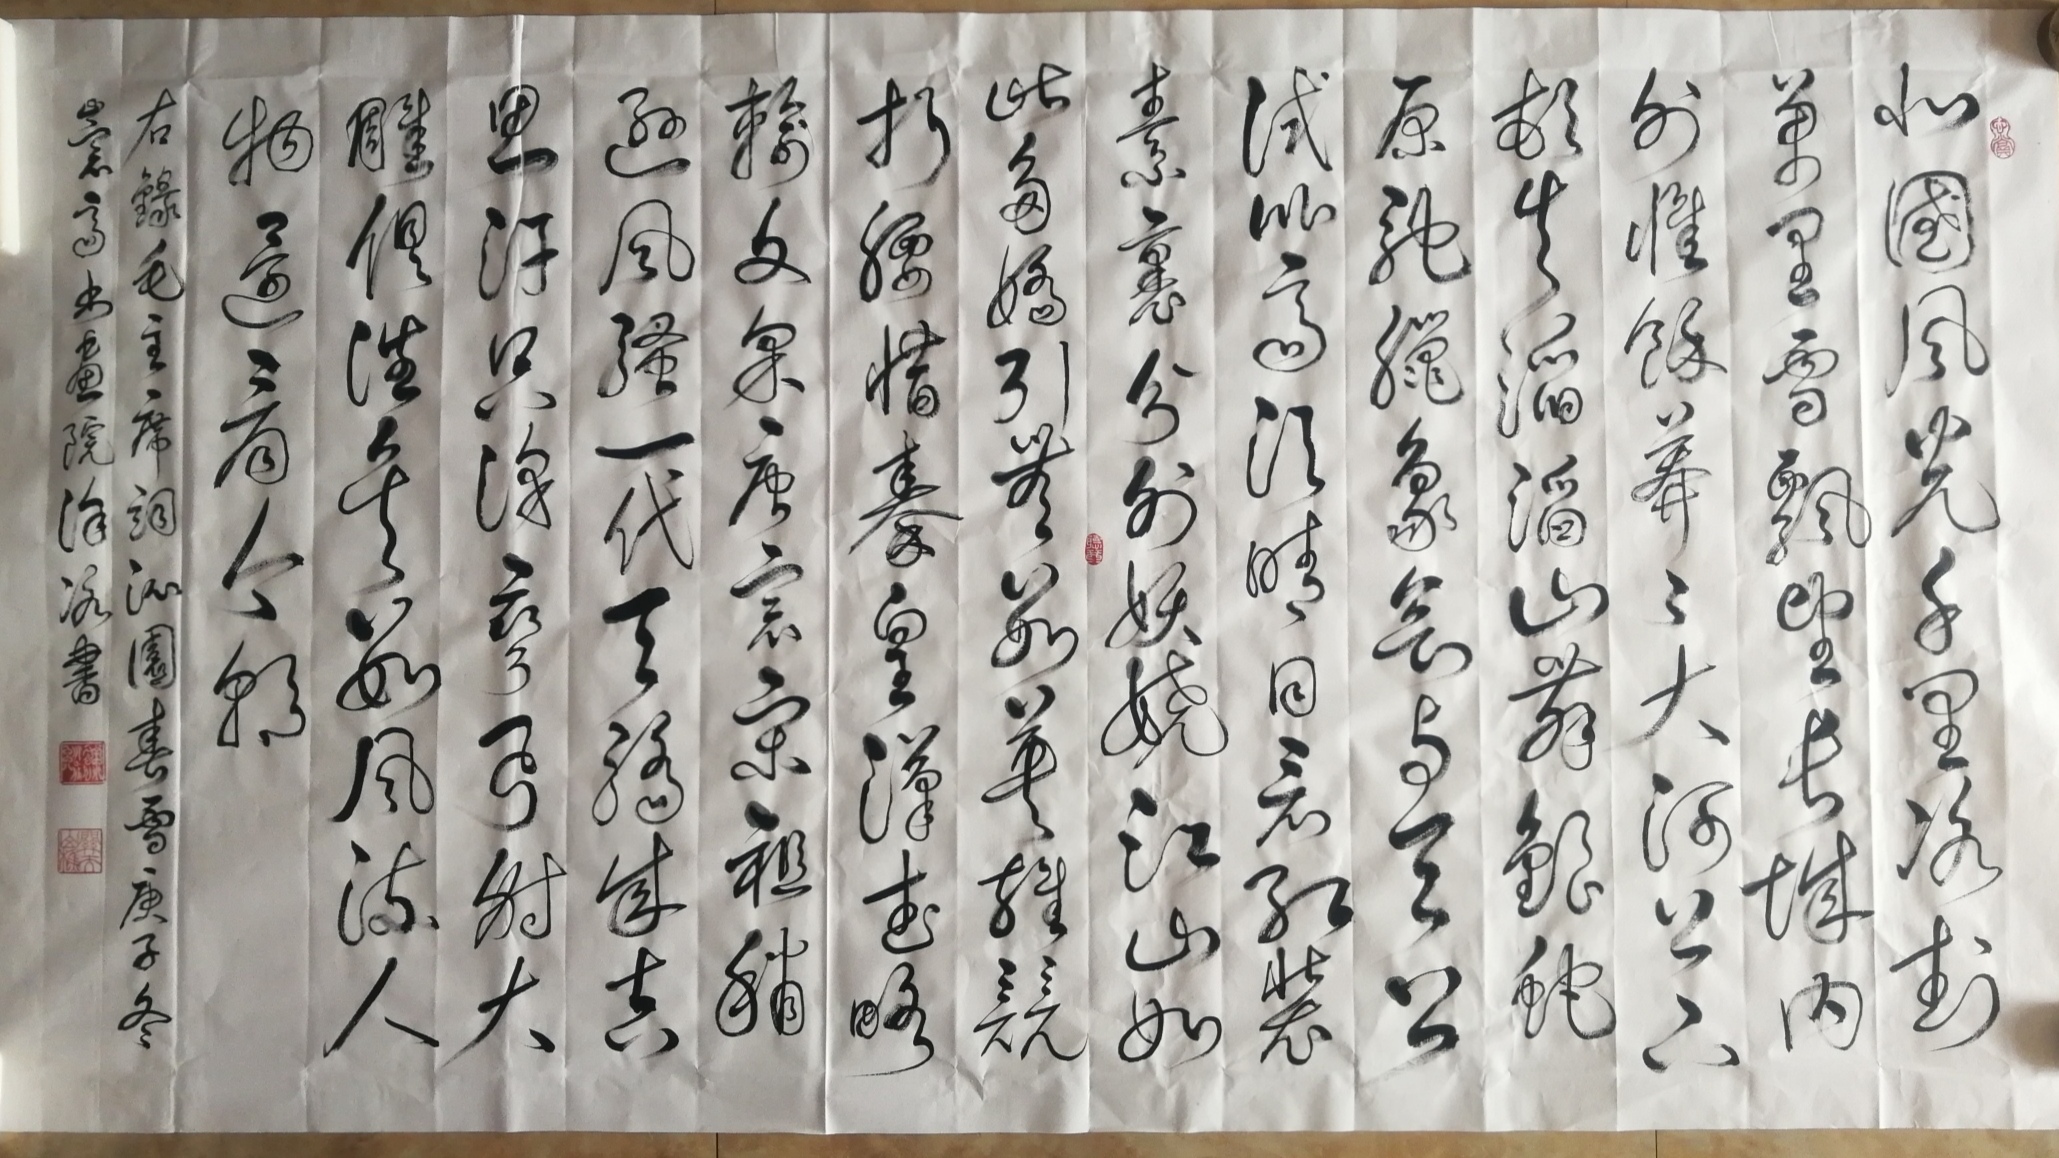 北國風光千里冰封
萬里雪飄望長城內
外惟餘莽〻大河上下
頓失滔滔山舞銀蛇
原馳臘象欲與天公
試比高須晴日看紅裝
素裹分外妖嬈江山如
此多嬌引無數英雄競
折腰惜秦皇漢武略
輸文采唐宗宋祖稍
遜風騷一代天驕成吉
思汗只識彎弓射大
雕俱往矣數風流人
物還看今朝
右錄毛主席詞沁園春雪庚子冬
崇高書畫院徐冰書